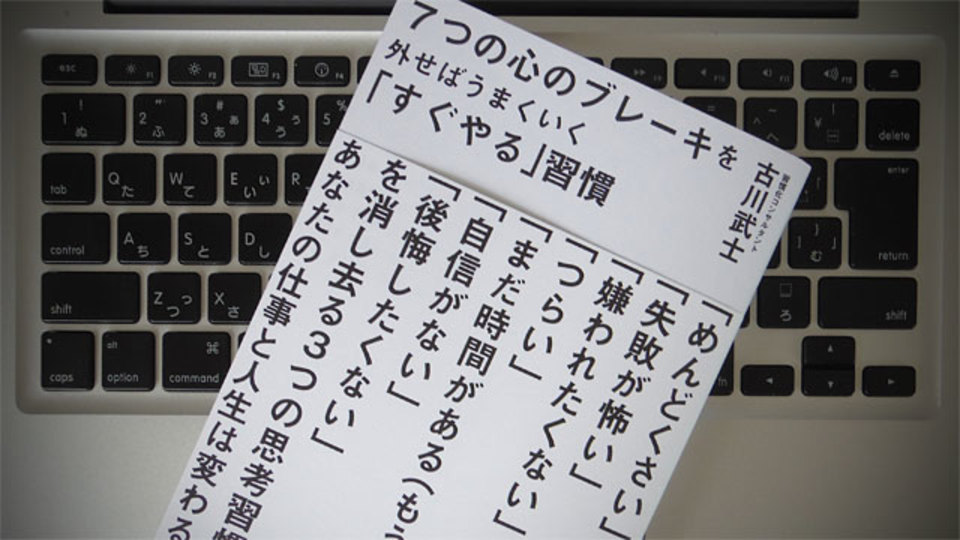 7つの心のブレーキを
外せばうまくいく
「すぐやる」習慣
習慣化コンサルタント
古川武士
「めんどくさい」
「失敗が怖い」
「嫌われたくない」
「つらい」
「まだ時間がある(もう
「自信がない」
「後悔したくない」
を消し去る3つの思考習慣
あなたの仕事と人生は変わる
esc
F1
F2
F3
F4
F10
F11
F12
! 1 ぬ
" 2 ふ
# 3 ぁ あ
$ 4 ぅ う
% 5
delete
tab
Q た
W て
E ぃ い
R
enter
return
control
A ち
S と
D し
} ] 」 む
shift
Z っ つ
X さ
ろ
shift
caps
alt option
⌘ command
fn